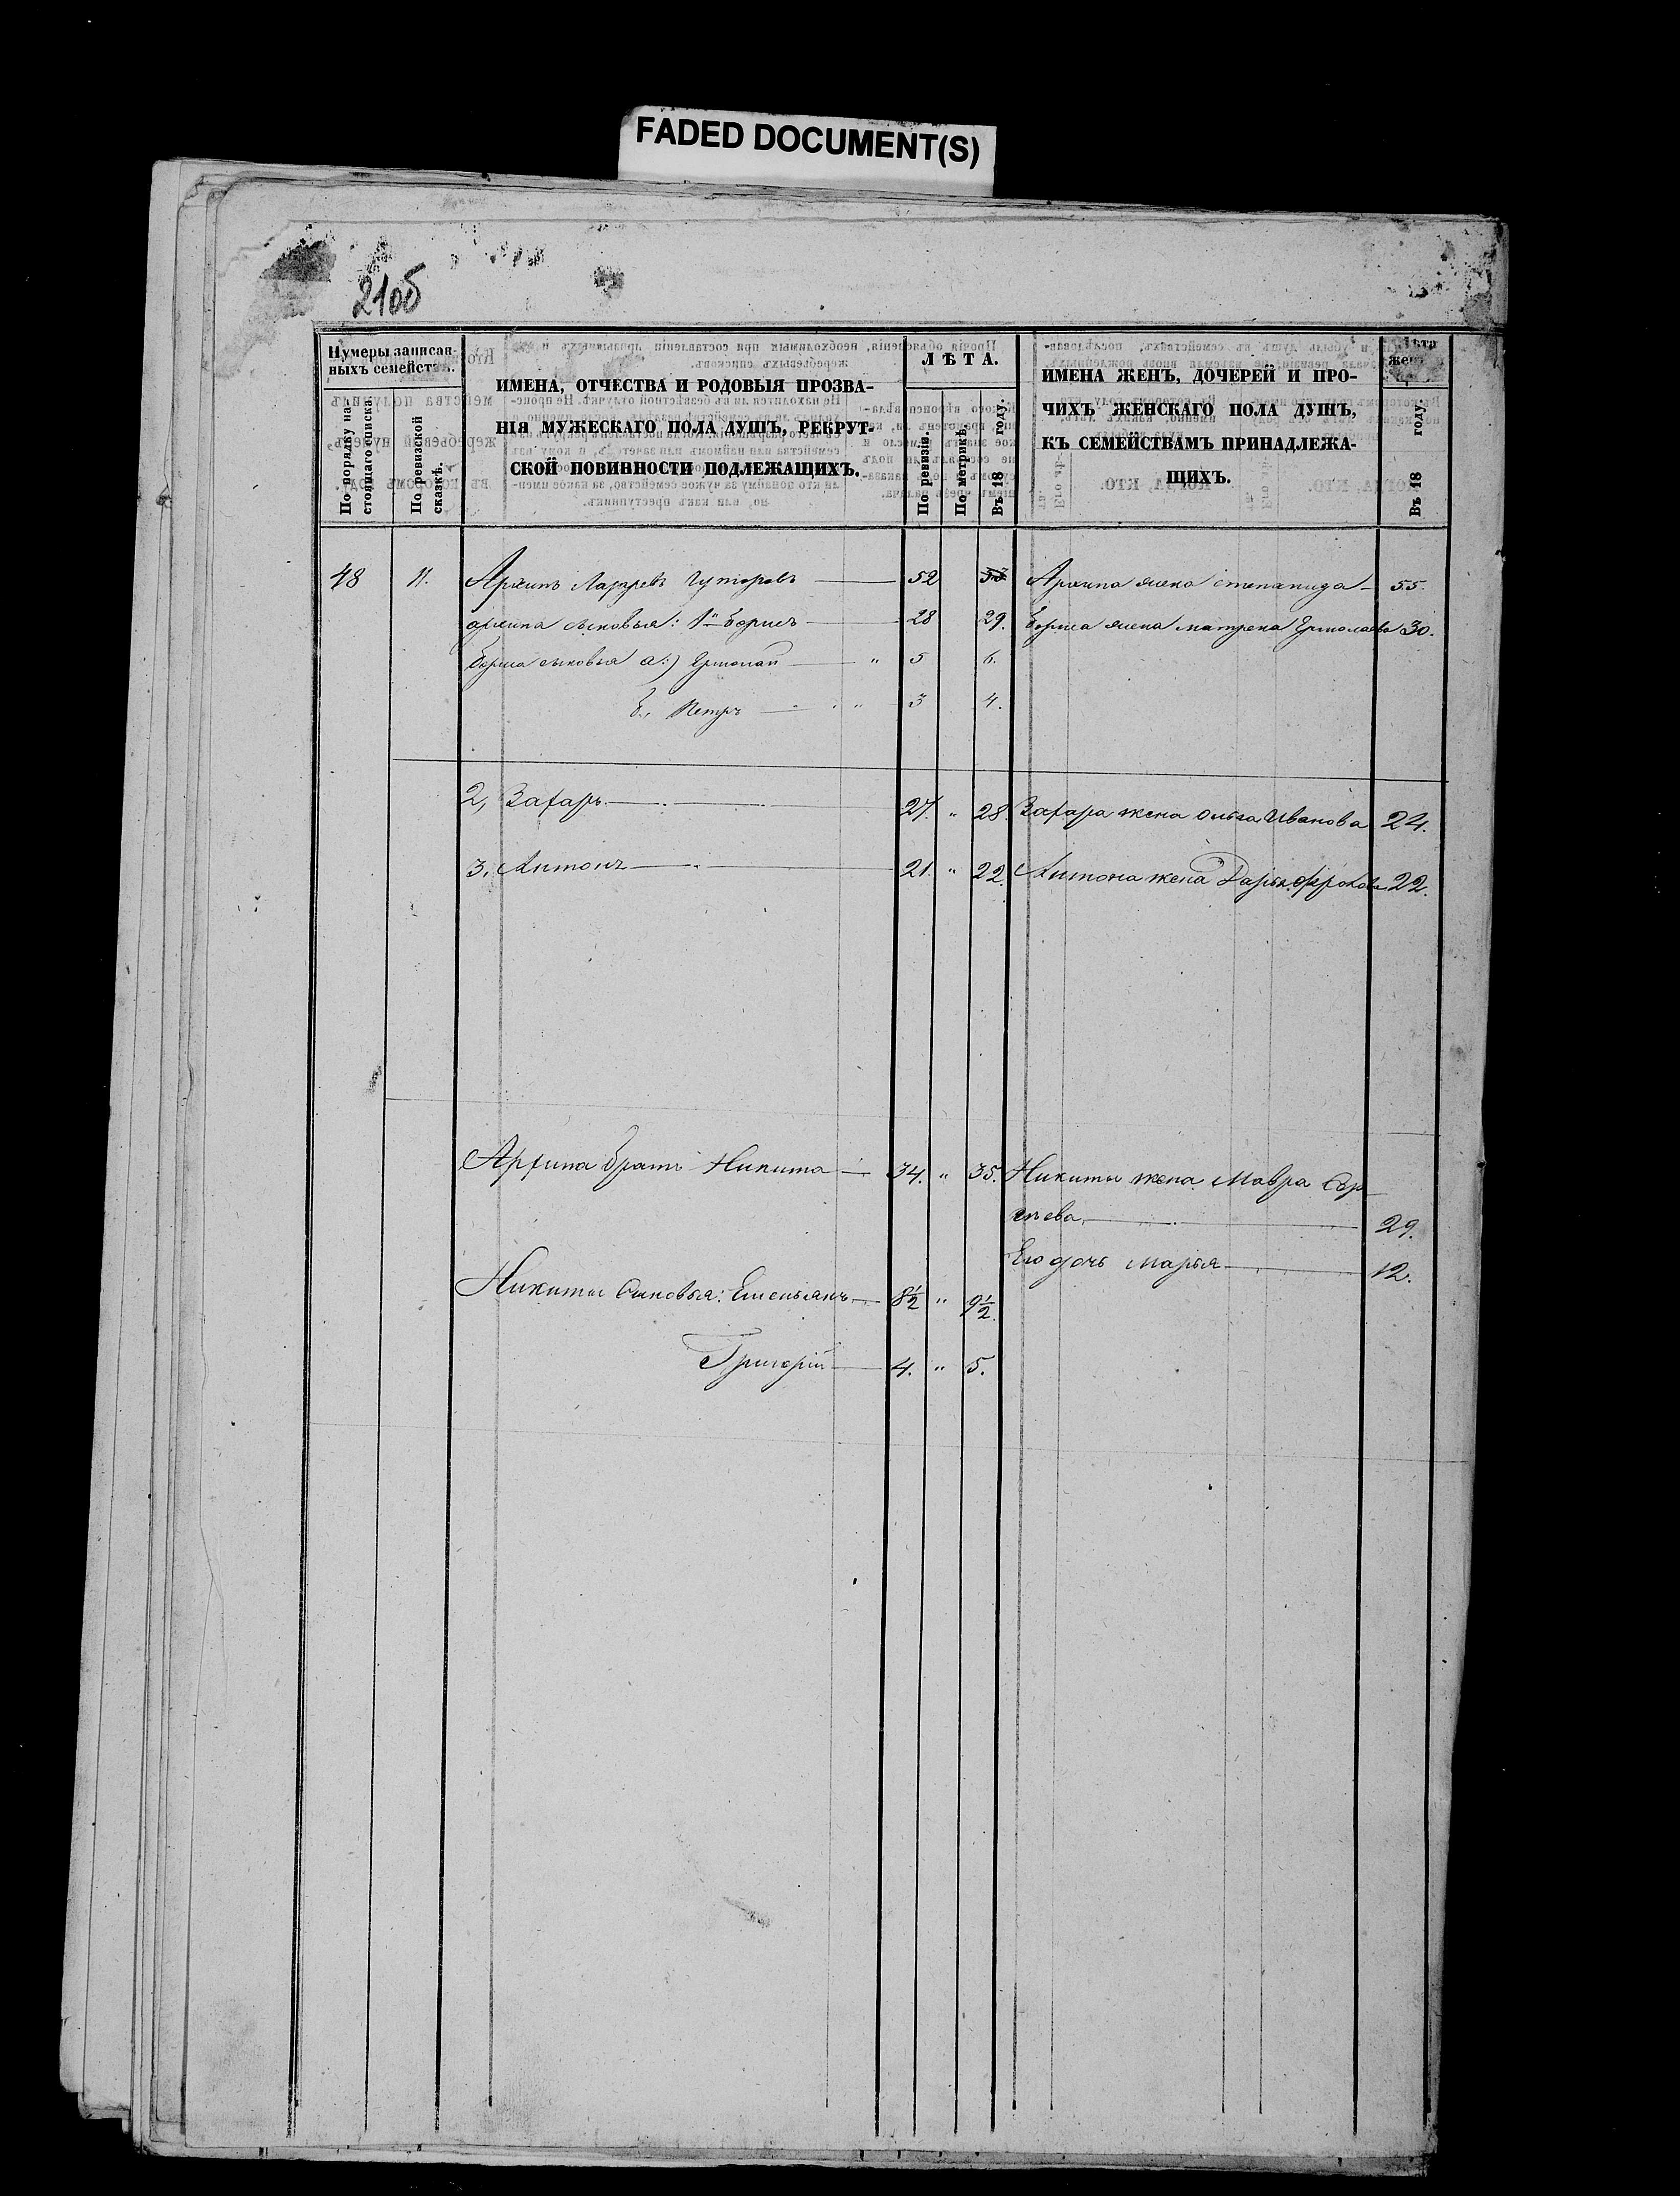 FADED DOCUMENT(S)
210б
Нумеры записан-
ныхъ семейств..
По порядку на-
стоящаго списка.
По ревизской
сказкѣ.
ИМЕНА, ОТЧЕСТВА И РОДОВЫЯ ПРОЗВА-
НІЯ МУЖЕСКАГО ПОЛА ДУШЪ, РЕКРУТ-
СКОЙ ПОВИННОСТИ ПОДЛЕЖАЩИХЪ.
ЛѢТА.
По ревизіи.
По метрикѣ.
Въ 18 году.
ИМЕНА ЖЕНЪ, ДОЧЕРЕЙ И ПРО-
ЧИХЪ ЖЕНСКАГО ПОЛА ДУШЪ,
КЪ СЕМЕЙСТВАМЪ ПРИНАДЛЕЖА-
ЩИХЪ.
Лѣта
жен
Въ 18 году.
48 11. Архипъ Лазаревъ Гуторовъ 52 53 Архипа жена степанида 55.
архипа сыновья: 1й борисъ 28 29. бориса жена матрена Ермолаева 30.
бориса сыновья а:) Ермолай " 5 6.
б., Петръ " 3 4.
2, Захаръ 27. " 28. Захара жена Ольга Иванова 24.
3. Антонъ 21. " 22. Антона жена Дарья 22.
Архипа братъ Никита 34. " 35. Никиты жена Мавра Сер
гѣева 29.
Его дочь Марья 12.
Никиты Сыновья: Емельянъ 8½ " 9½.
Григорій 4. " 5.